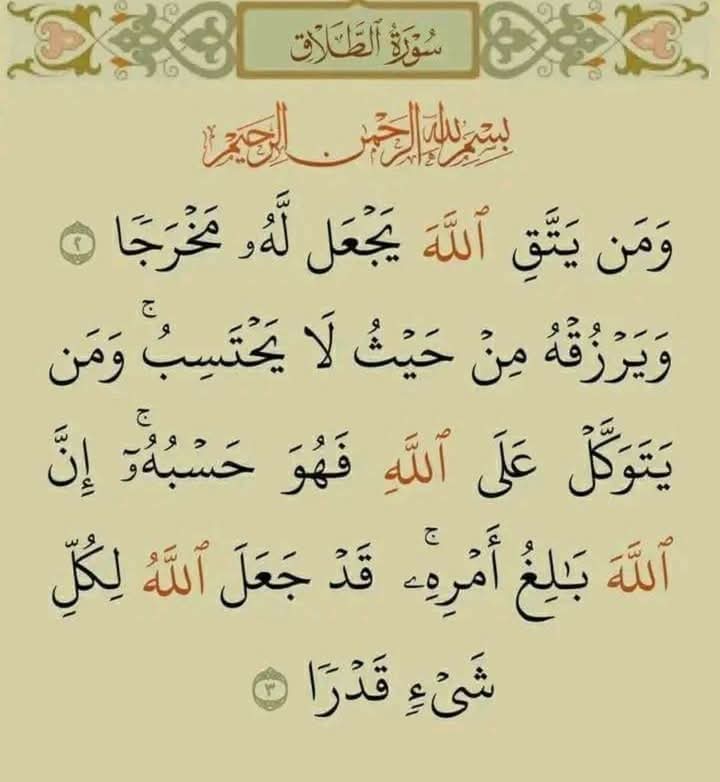 سُورَةُ ٱلطَّلَاقِ
بِسْمِ اللهِ الرَّحْمٰنِ الرَّحِيْمِ
وَمَن يَتَّقِ ٱللَّهَ يَجْعَل لَّهُۥ مَخْرَجًا ٢
وَيَرْزُقْهُ مِنْ حَيْثُ لَا يَحْتَسِبُ ۚ وَمَن
يَتَوَكَّلْ عَلَى ٱللَّهِ فَهُوَ حَسْبُهُۥٓ ۚ إِنَّ
ٱللَّهَ بَـٰلِغُ أَمْرِهِۦ ۚ قَدْ جَعَلَ ٱللَّهُ لِكُلِّ
شَىْءٍ قَدْرًا ٣